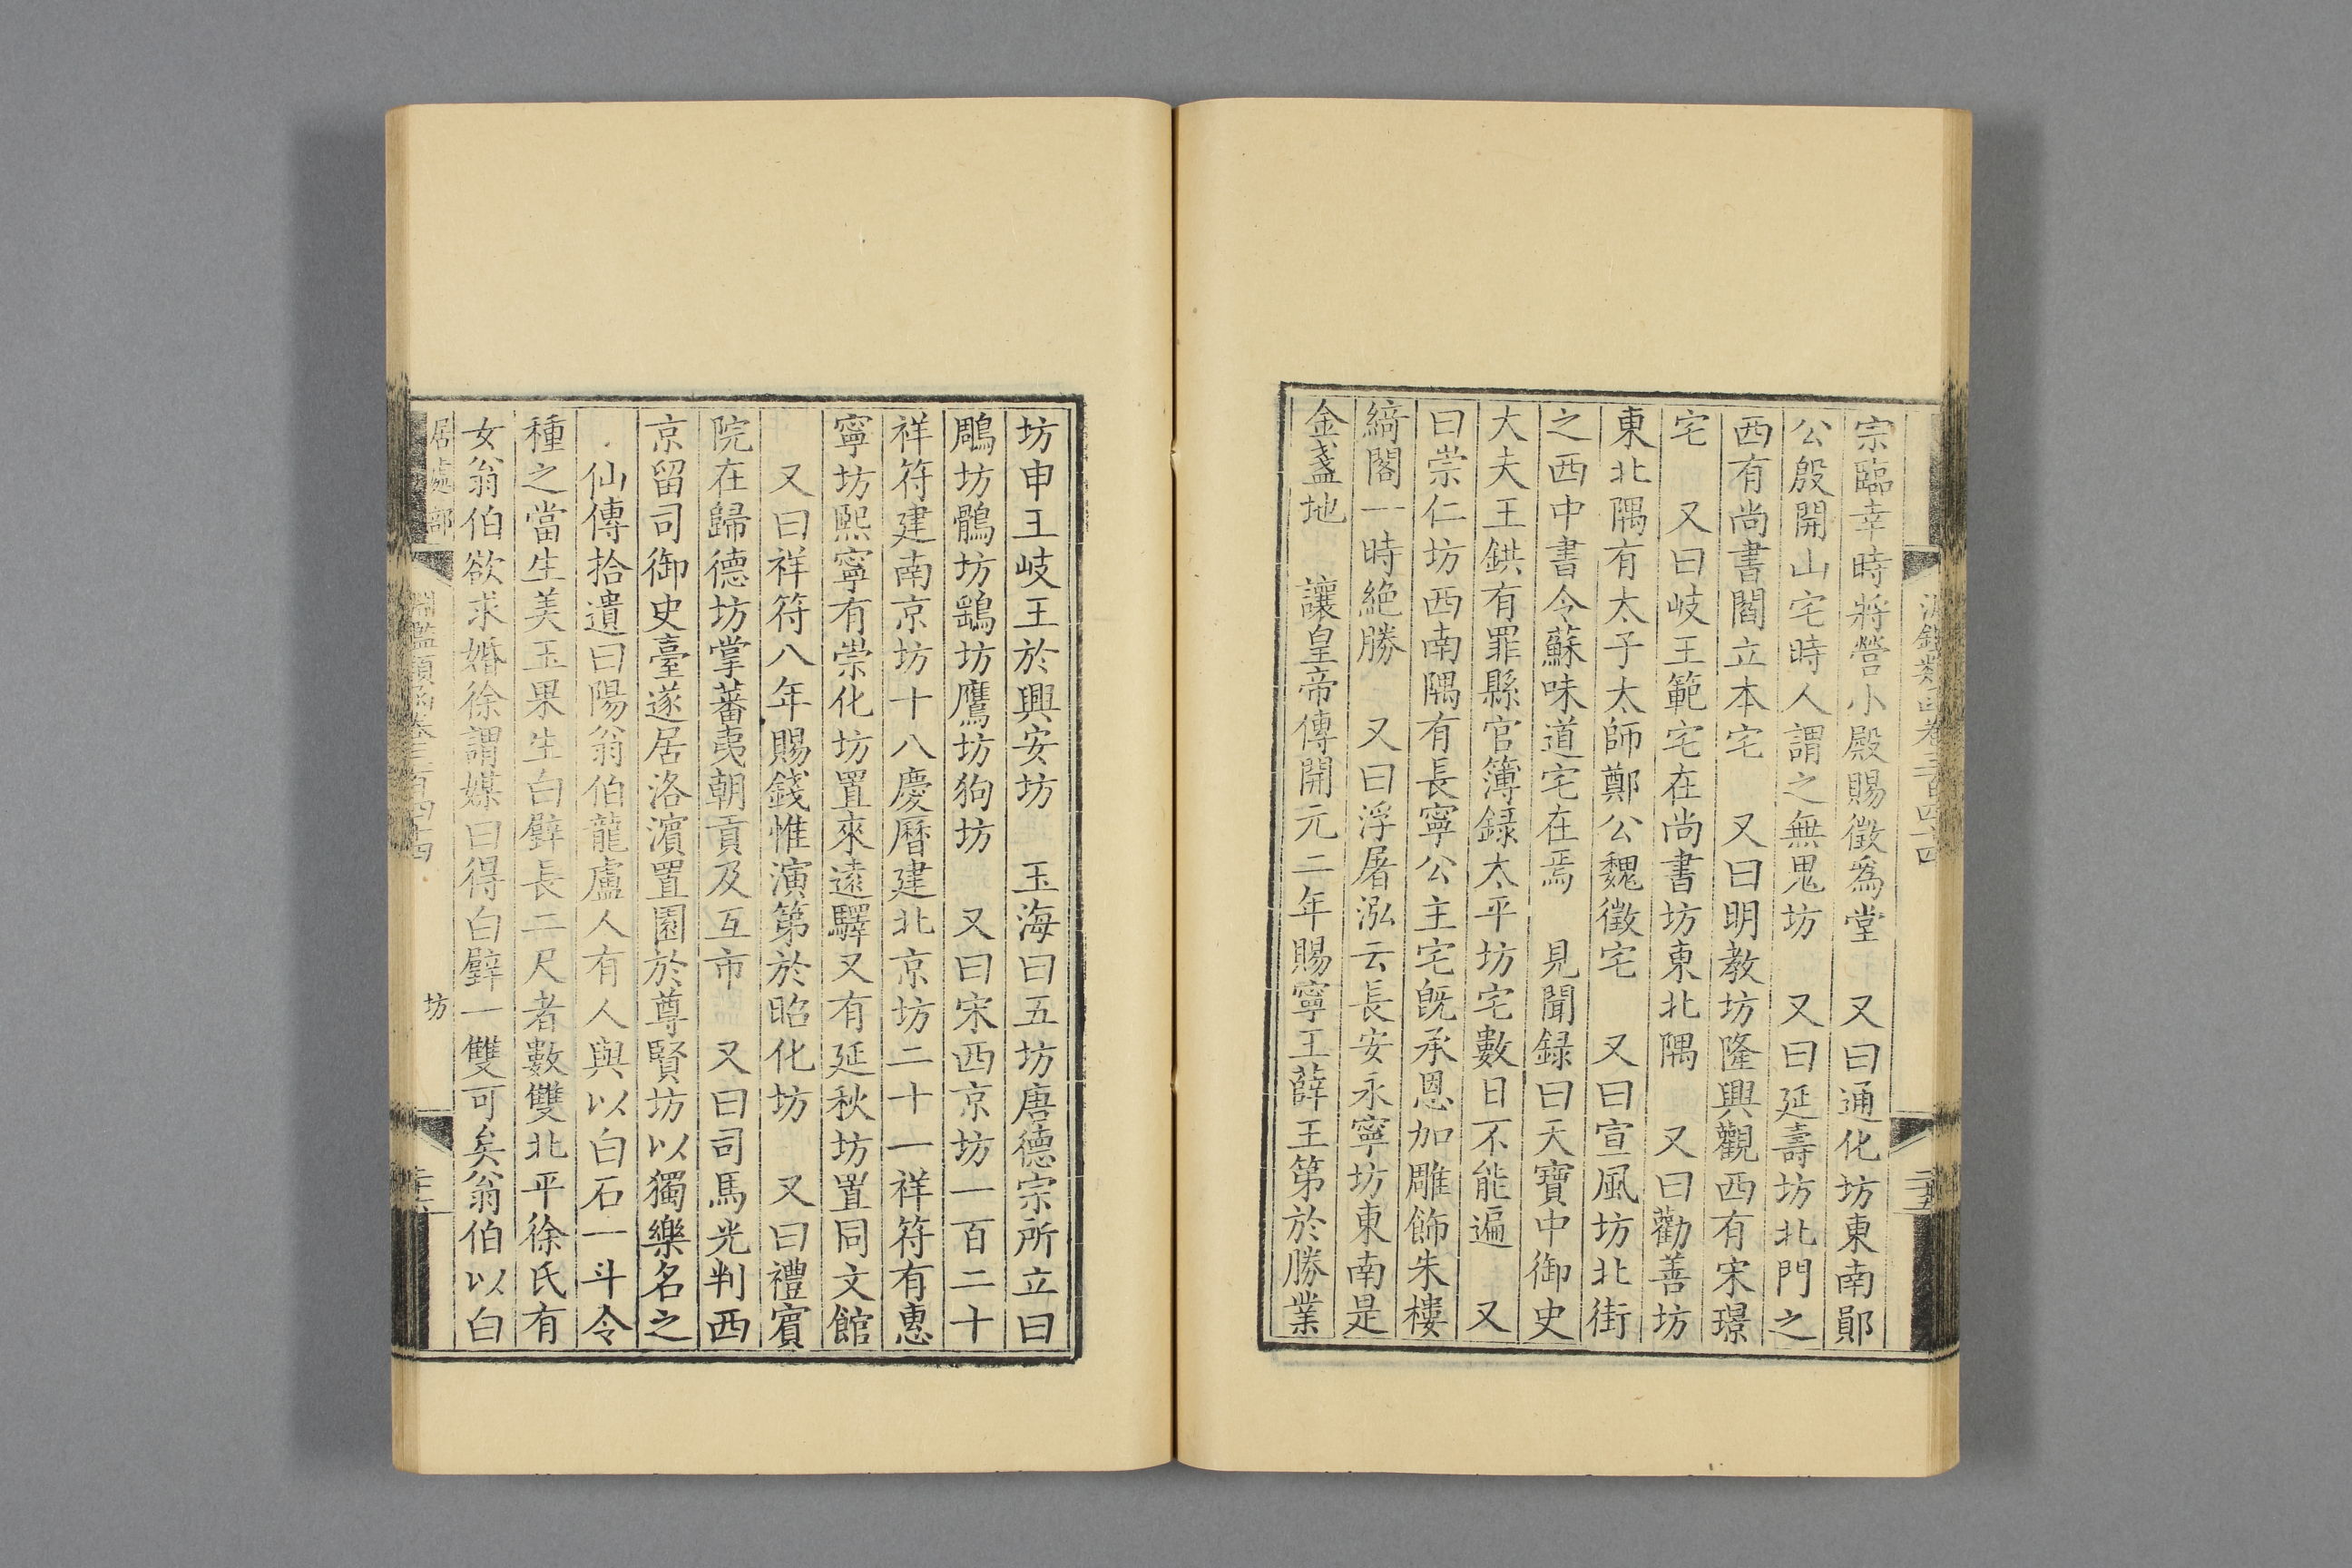 宗臨幸時將營小殿賜徵爲堂　又曰通化坊東南鄖
公殷開山宅時人謂之無鬼坊　又曰延壽坊北門之
西有尚書閻立本宅　又曰明教坊隆興觀西有宋璟
宅　又曰岐王範宅在尚書坊東北隅　又曰勸善坊
東北隅有太子太師鄭公魏徵宅　又曰宣風坊北街
之西中書令蘇味道宅在焉　見聞録曰天寶中御史
大夫王鉷有罪縣官簿録太平坊宅數日不能遍　又
曰崇仁坊西南隅有長寧公主宅旣承恩加雕飾朱樓
綺閣一時絶勝　又曰浮屠泓云長安永寧坊東南是
金盞地　讓皇帝傳開元二年賜寧王薛王第於勝業
坊申王岐王於興安坊　玉海曰五坊唐德宗所立曰
鵰坊鶻坊鷂坊鷹坊狗坊　又曰宋西京坊一百二十
祥符建南京坊十八慶曆建北京坊二十一祥符有惠
寧坊熙寧有崇化坊置來遠驛又有延秋坊置同文館
又曰祥符八年賜錢惟演第於昭化坊　又曰禮賓
院在歸德坊掌蕃夷朝貢及互市　又曰司馬光判西
京留司御史臺遂居洛濱置園於尊賢坊以獨樂名之
仙傳拾遺曰陽翁伯龍盧人有人與以白石一斗令
種之當生美玉果生白璧長二尺者數雙北平徐氏有
女翁伯欲求婚徐謂媒曰得白璧一雙可矣翁伯以白
居處部
淵鑑類函卷三百四十四
坊